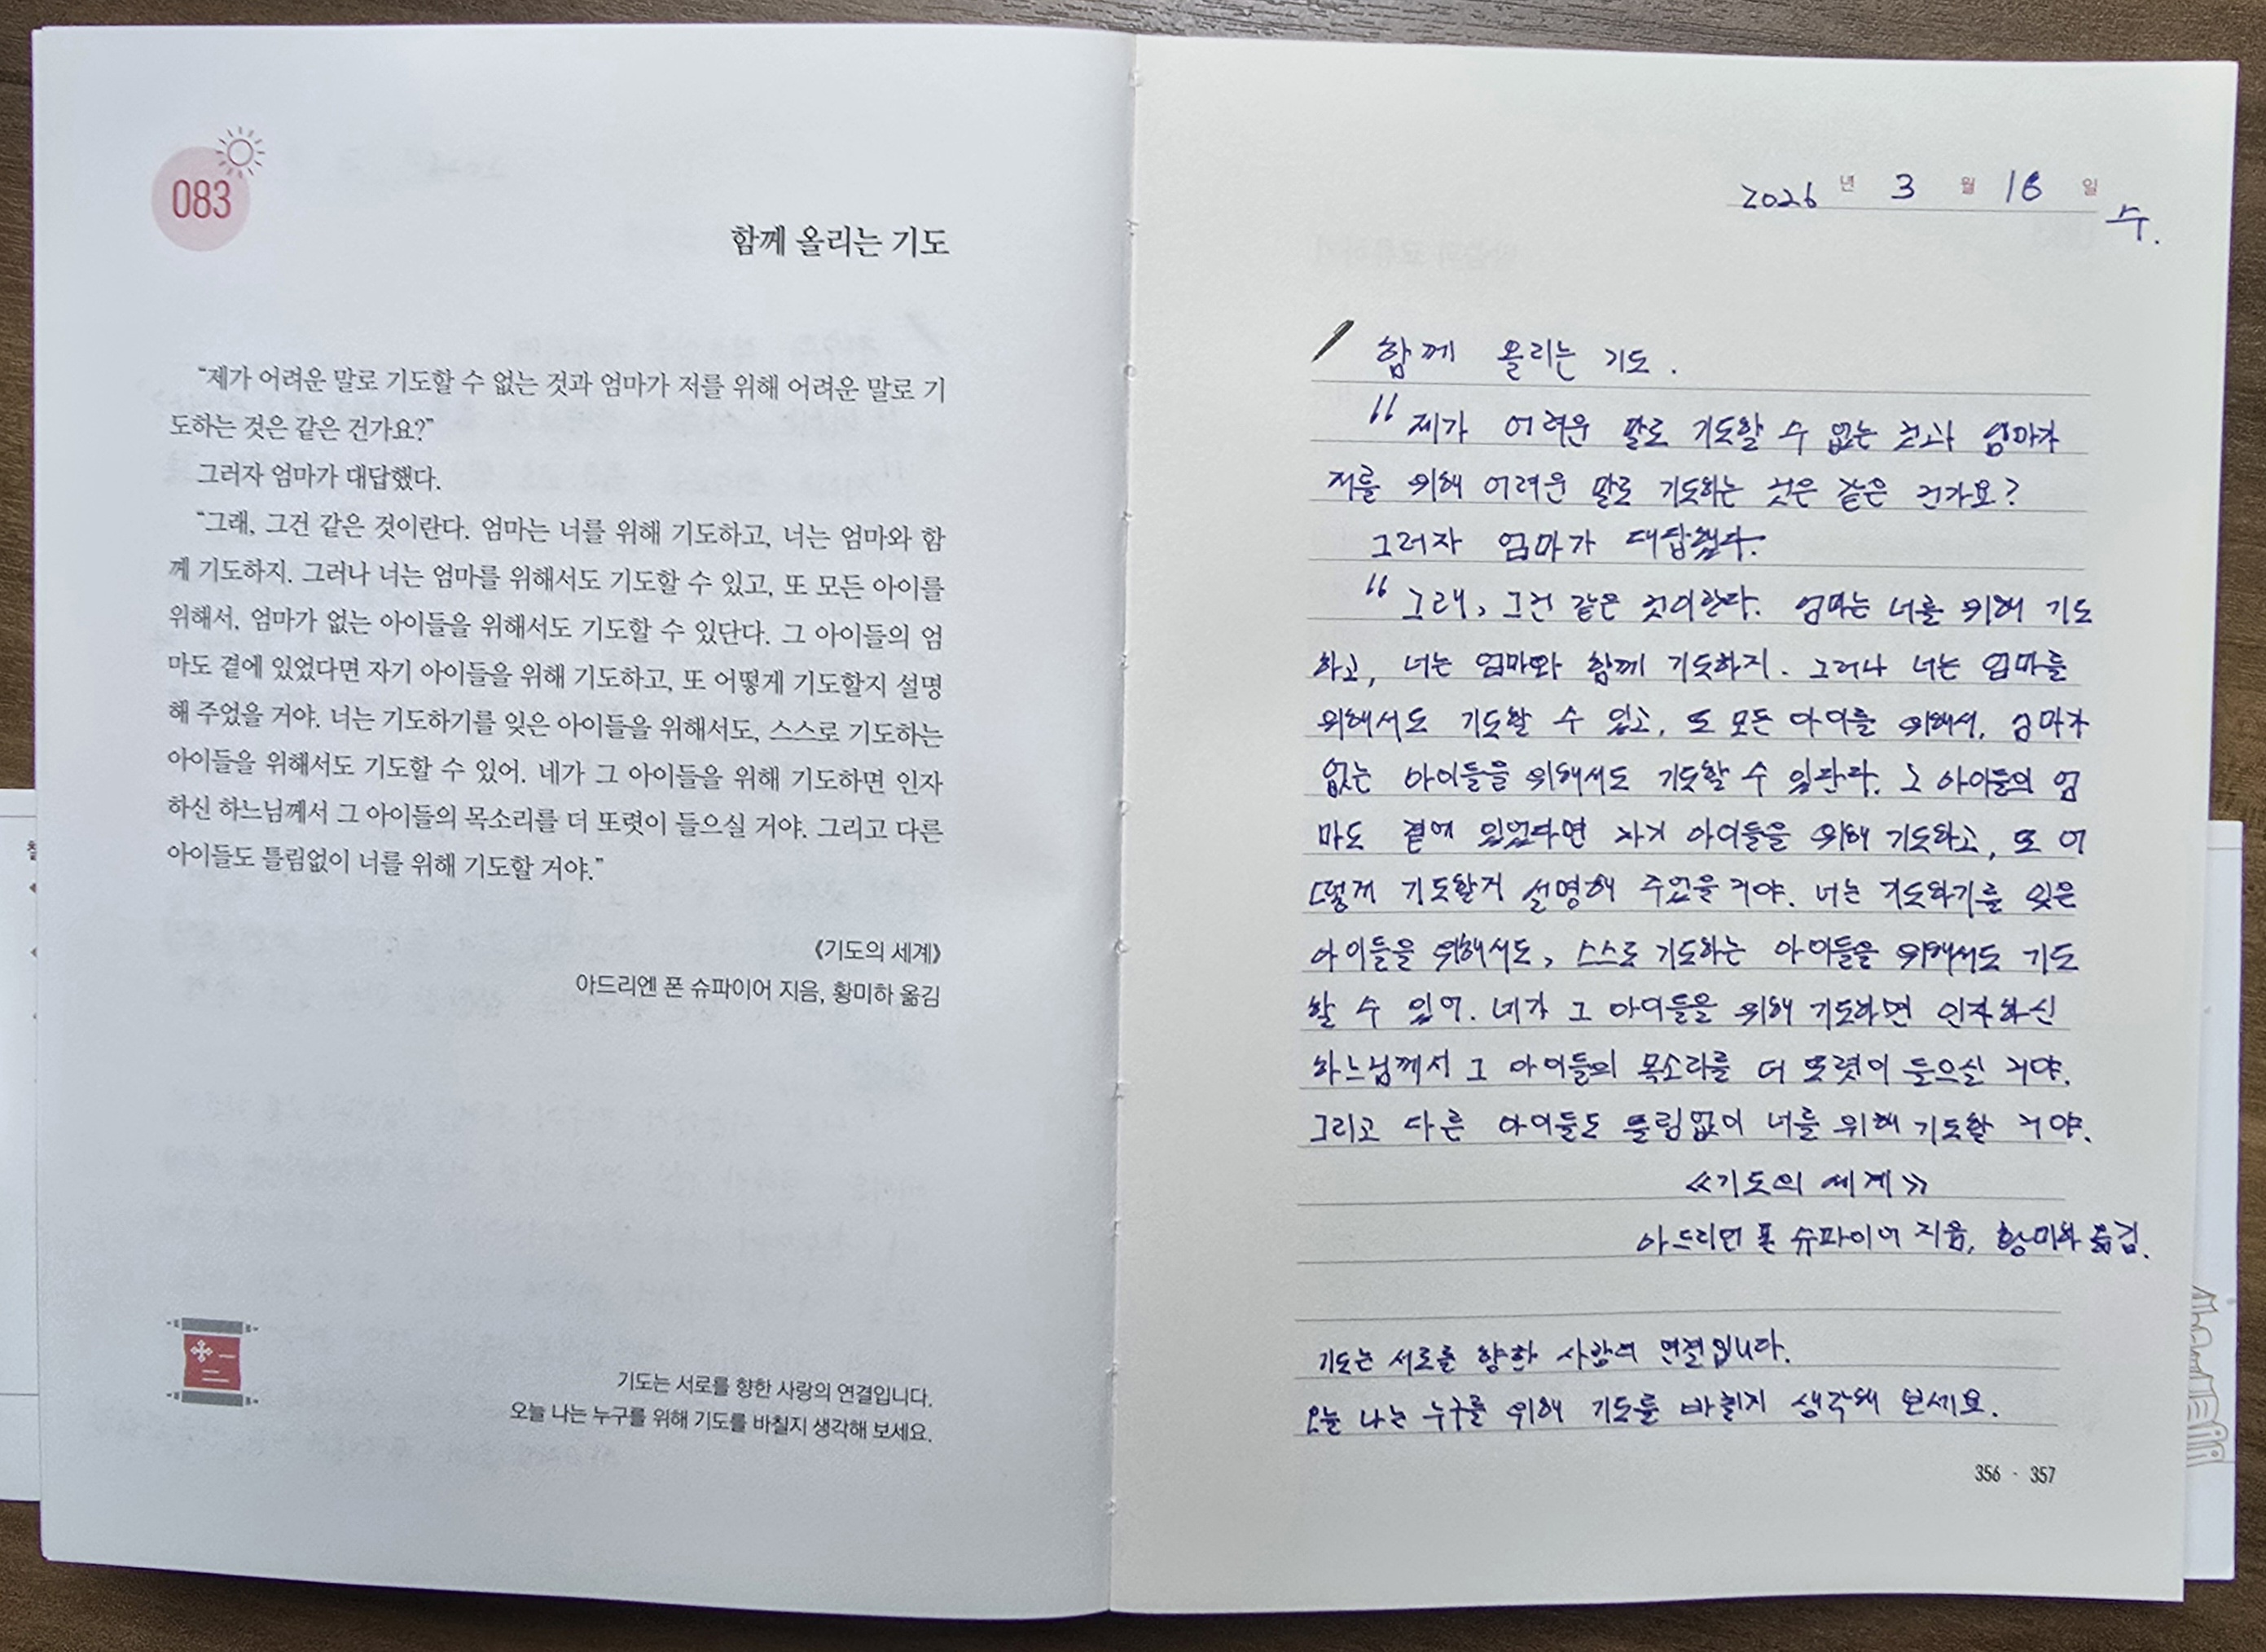 083
함께 올리는 기도
“제가 어려운 말로 기도할 수 없는 것과 엄마가 저를 위해 어려운 말로 기
도하는 것은 같은 건가요?”
그러자 엄마가 대답했다.
“그래, 그건 같은 것이란다. 엄마는 너를 위해 기도하고, 너는 엄마와 함
께 기도하지. 그러나 너는 엄마를 위해서도 기도할 수 있고, 또 모든 아이를
위해서, 엄마가 없는 아이들을 위해서도 기도할 수 있단다. 그 아이들의 엄
마도 곁에 있었다면 자기 아이들을 위해 기도하고, 또 어떻게 기도할지 설명
해 주었을 거야. 너는 기도하기를 잊은 아이들을 위해서도, 스스로 기도하는
아이들을 위해서도 기도할 수 있어. 네가 그 아이들을 위해 기도하면 인자
하신 하느님께서 그 아이들의 목소리를 더 또렷이 들으실 거야. 그리고 다른
아이들도 틀림없이 너를 위해 기도할 거야.”
《기도의 세계》
아드리엔 폰 슈파이어 지음, 황미하 옮김
기도는 서로를 향한 사랑의 연결입니다.
오늘 나는 누구를 위해 기도를 바칠지 생각해 보세요.
2026 년 3 월 18 일
수.
함께 올리는 기도.
“제가 어려운 말로 기도할 수 없는 것과 엄마가
저를 위해 어려운 말로 기도하는 것은 같은 건가요?
그러자 엄마가 대답했다.
“그래, 그건 같은 것이란다. 엄마는 너를 위해 기도
하고, 너는 엄마와 함께 기도하지. 그러나 너는 엄마를
위해서도 기도할 수 있고, 또 모든 아이를 위해서, 엄마가
없는 아이들을 위해서도 기도할 수 있단다. 그 아이들의 엄
마도 곁에 있었다면 자기 아이들을 위해 기도하고, 또 어
떻게 기도할지 설명해 주었을 거야. 너는 기도하기를 잊은
아이들을 위해서도, 스스로 기도하는 아이들을 위해서도 기도
할 수 있어. 네가 그 아이들을 위해 기도하면 인자하신
하느님께서 그 아이들의 목소리를 더 또렷이 들으실 거야.
그리고 다른 아이들도 틀림없이 너를 위해 기도할 거야.
《기도의 세계》
아드리엔 폰 슈파이어 지음, 황미하 옮김.
기도는 서로를 향한 사랑의 연결입니다.
오늘 나는 누구를 위해 기도를 바칠지 생각해 보세요.
356 · 357